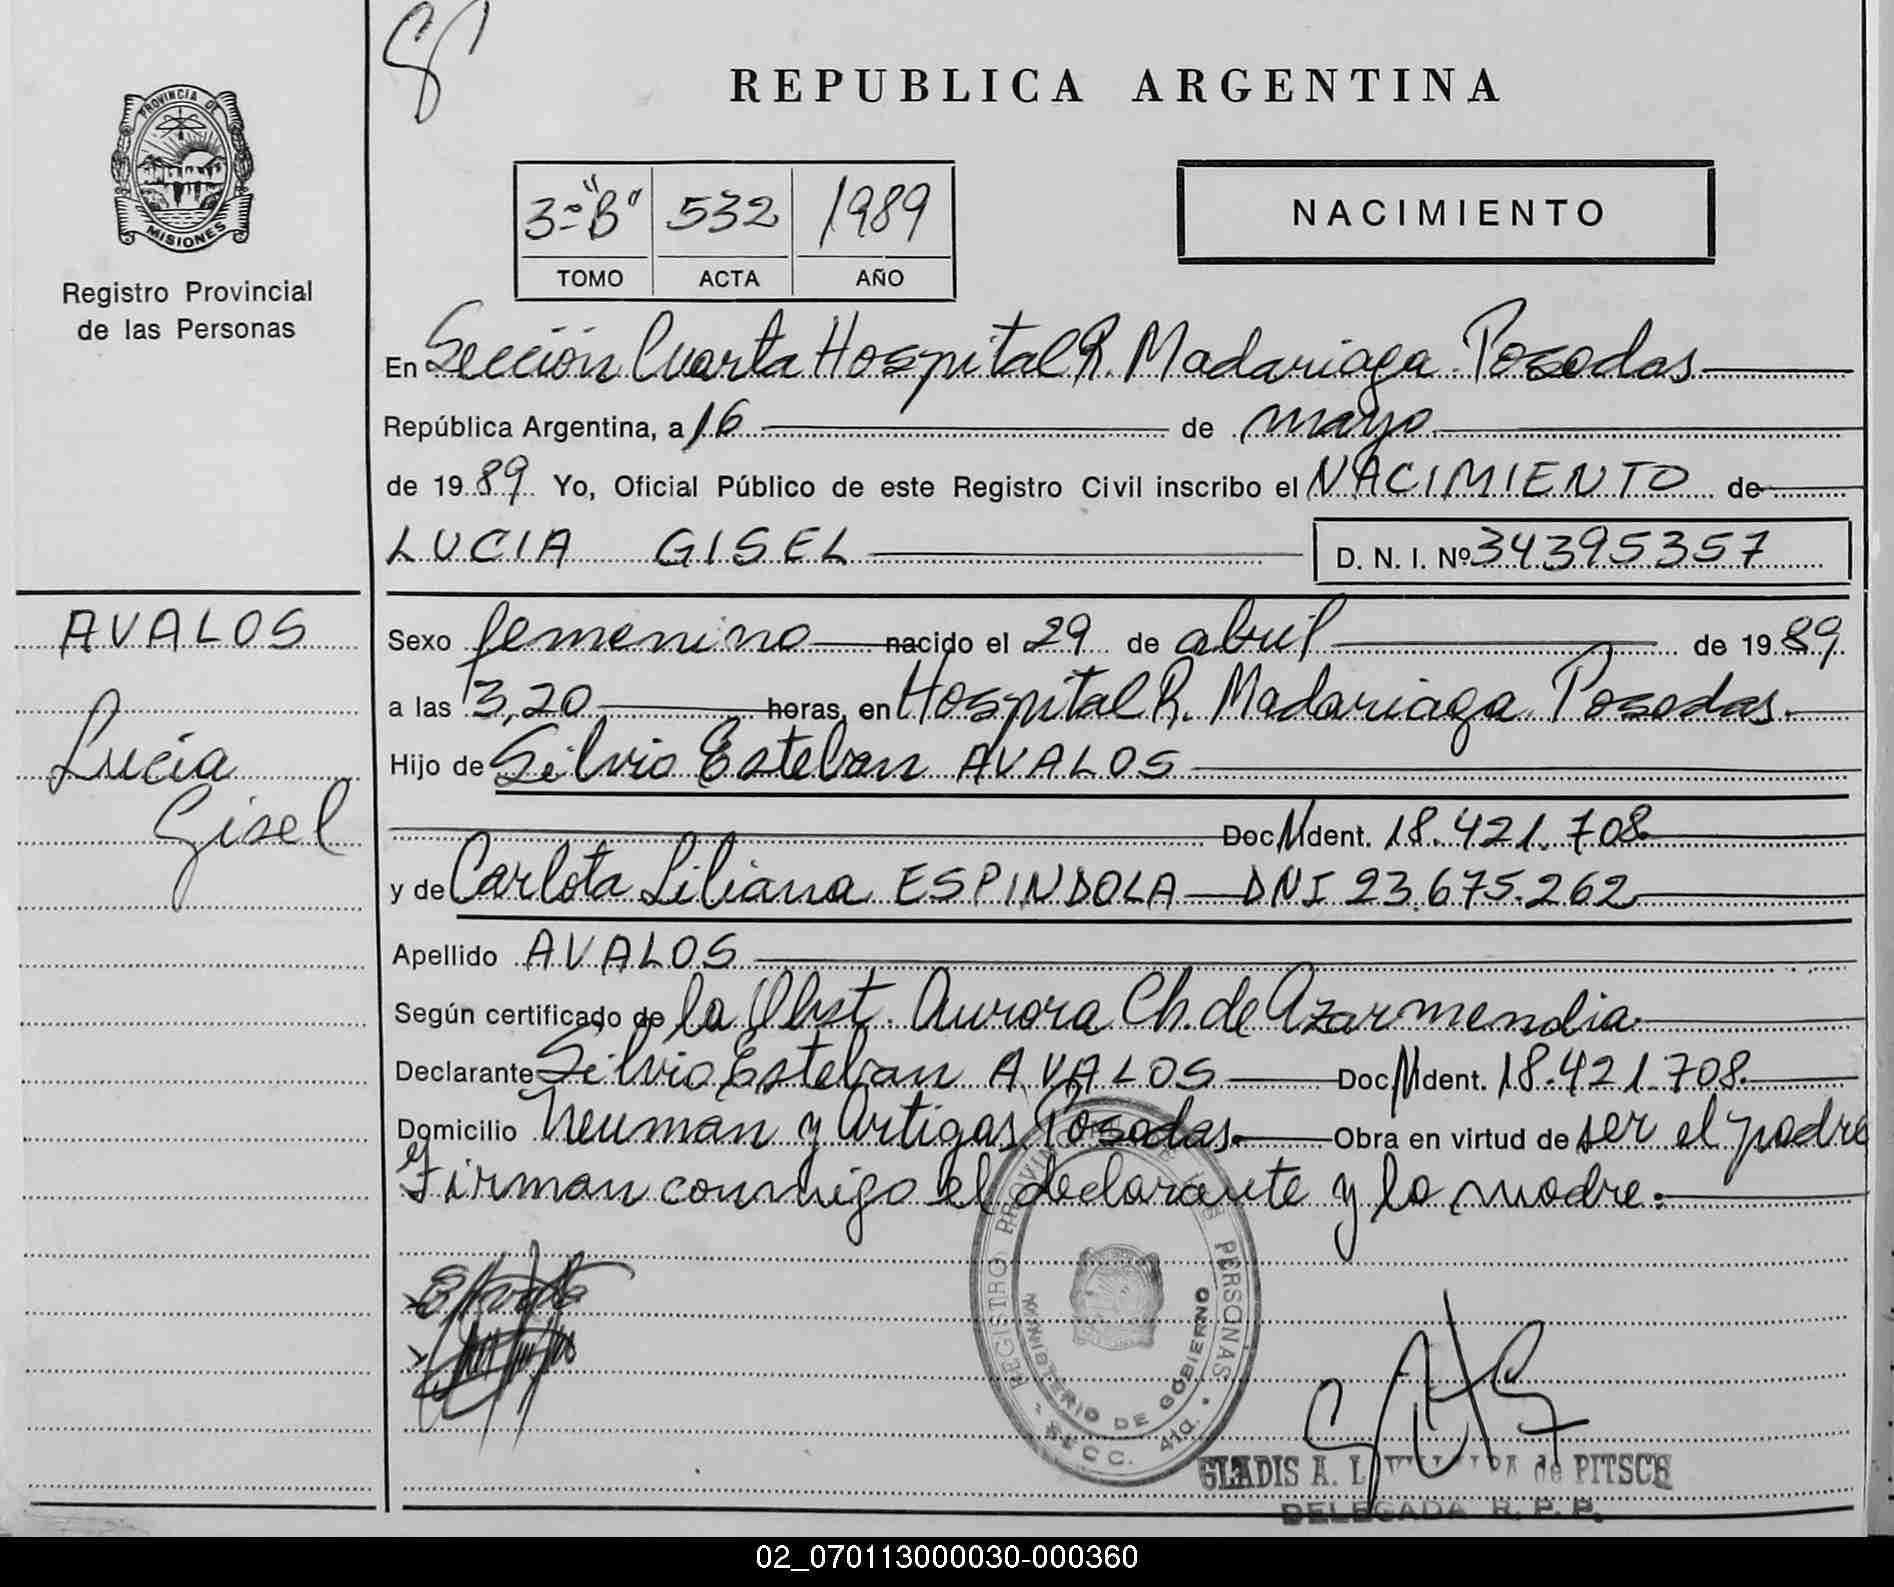 REPUBLICA ARGENTINA
PROVINCIA DE
MISIONES
Registro Provincial
de las Personas
3="B" 532 1989
TOMO ACTA AÑO
NACIMIENTO
En Sección Cuarta Hospital R. Madariaga. Posadas
República Argentina, a 16 de mayo
de 1989 Yo, Oficial Público de este Registro Civil inscribo el NACIMIENTO de
LUCIA GISEL D. N. I. Nº 34395357
AVALOS
Lucia
Gisel
Sexo femenino nacido el 29 de abril de 1989
a las 3,20 heras, en Hospital R. Madariaga. Posadas.
Hijo de Silvio Esteban AVALOS
Doc M Ident. 18.421.708
y de Carlota Liliana ESPINDOLA DNI 23.675.262
Apellido AVALOS
Según certificado de la Obst. Aurora Ch. de Azarmendia
Declarante Silvio Esteban AVALOS Doc M Ident. 18.421.708
Domicilio Neuman y Artigas, Posadas. Obra en virtud de ser el padre
Firman conmigo el declarante y la madre.
REGISTRO PROVINCIAL DE LAS PERSONAS
MINISTERIO DE GOBIERNO
SECC. 41a.
GLADIS A. de PITSCH
DELEGADA R. P. P.
02_070113000030-000360